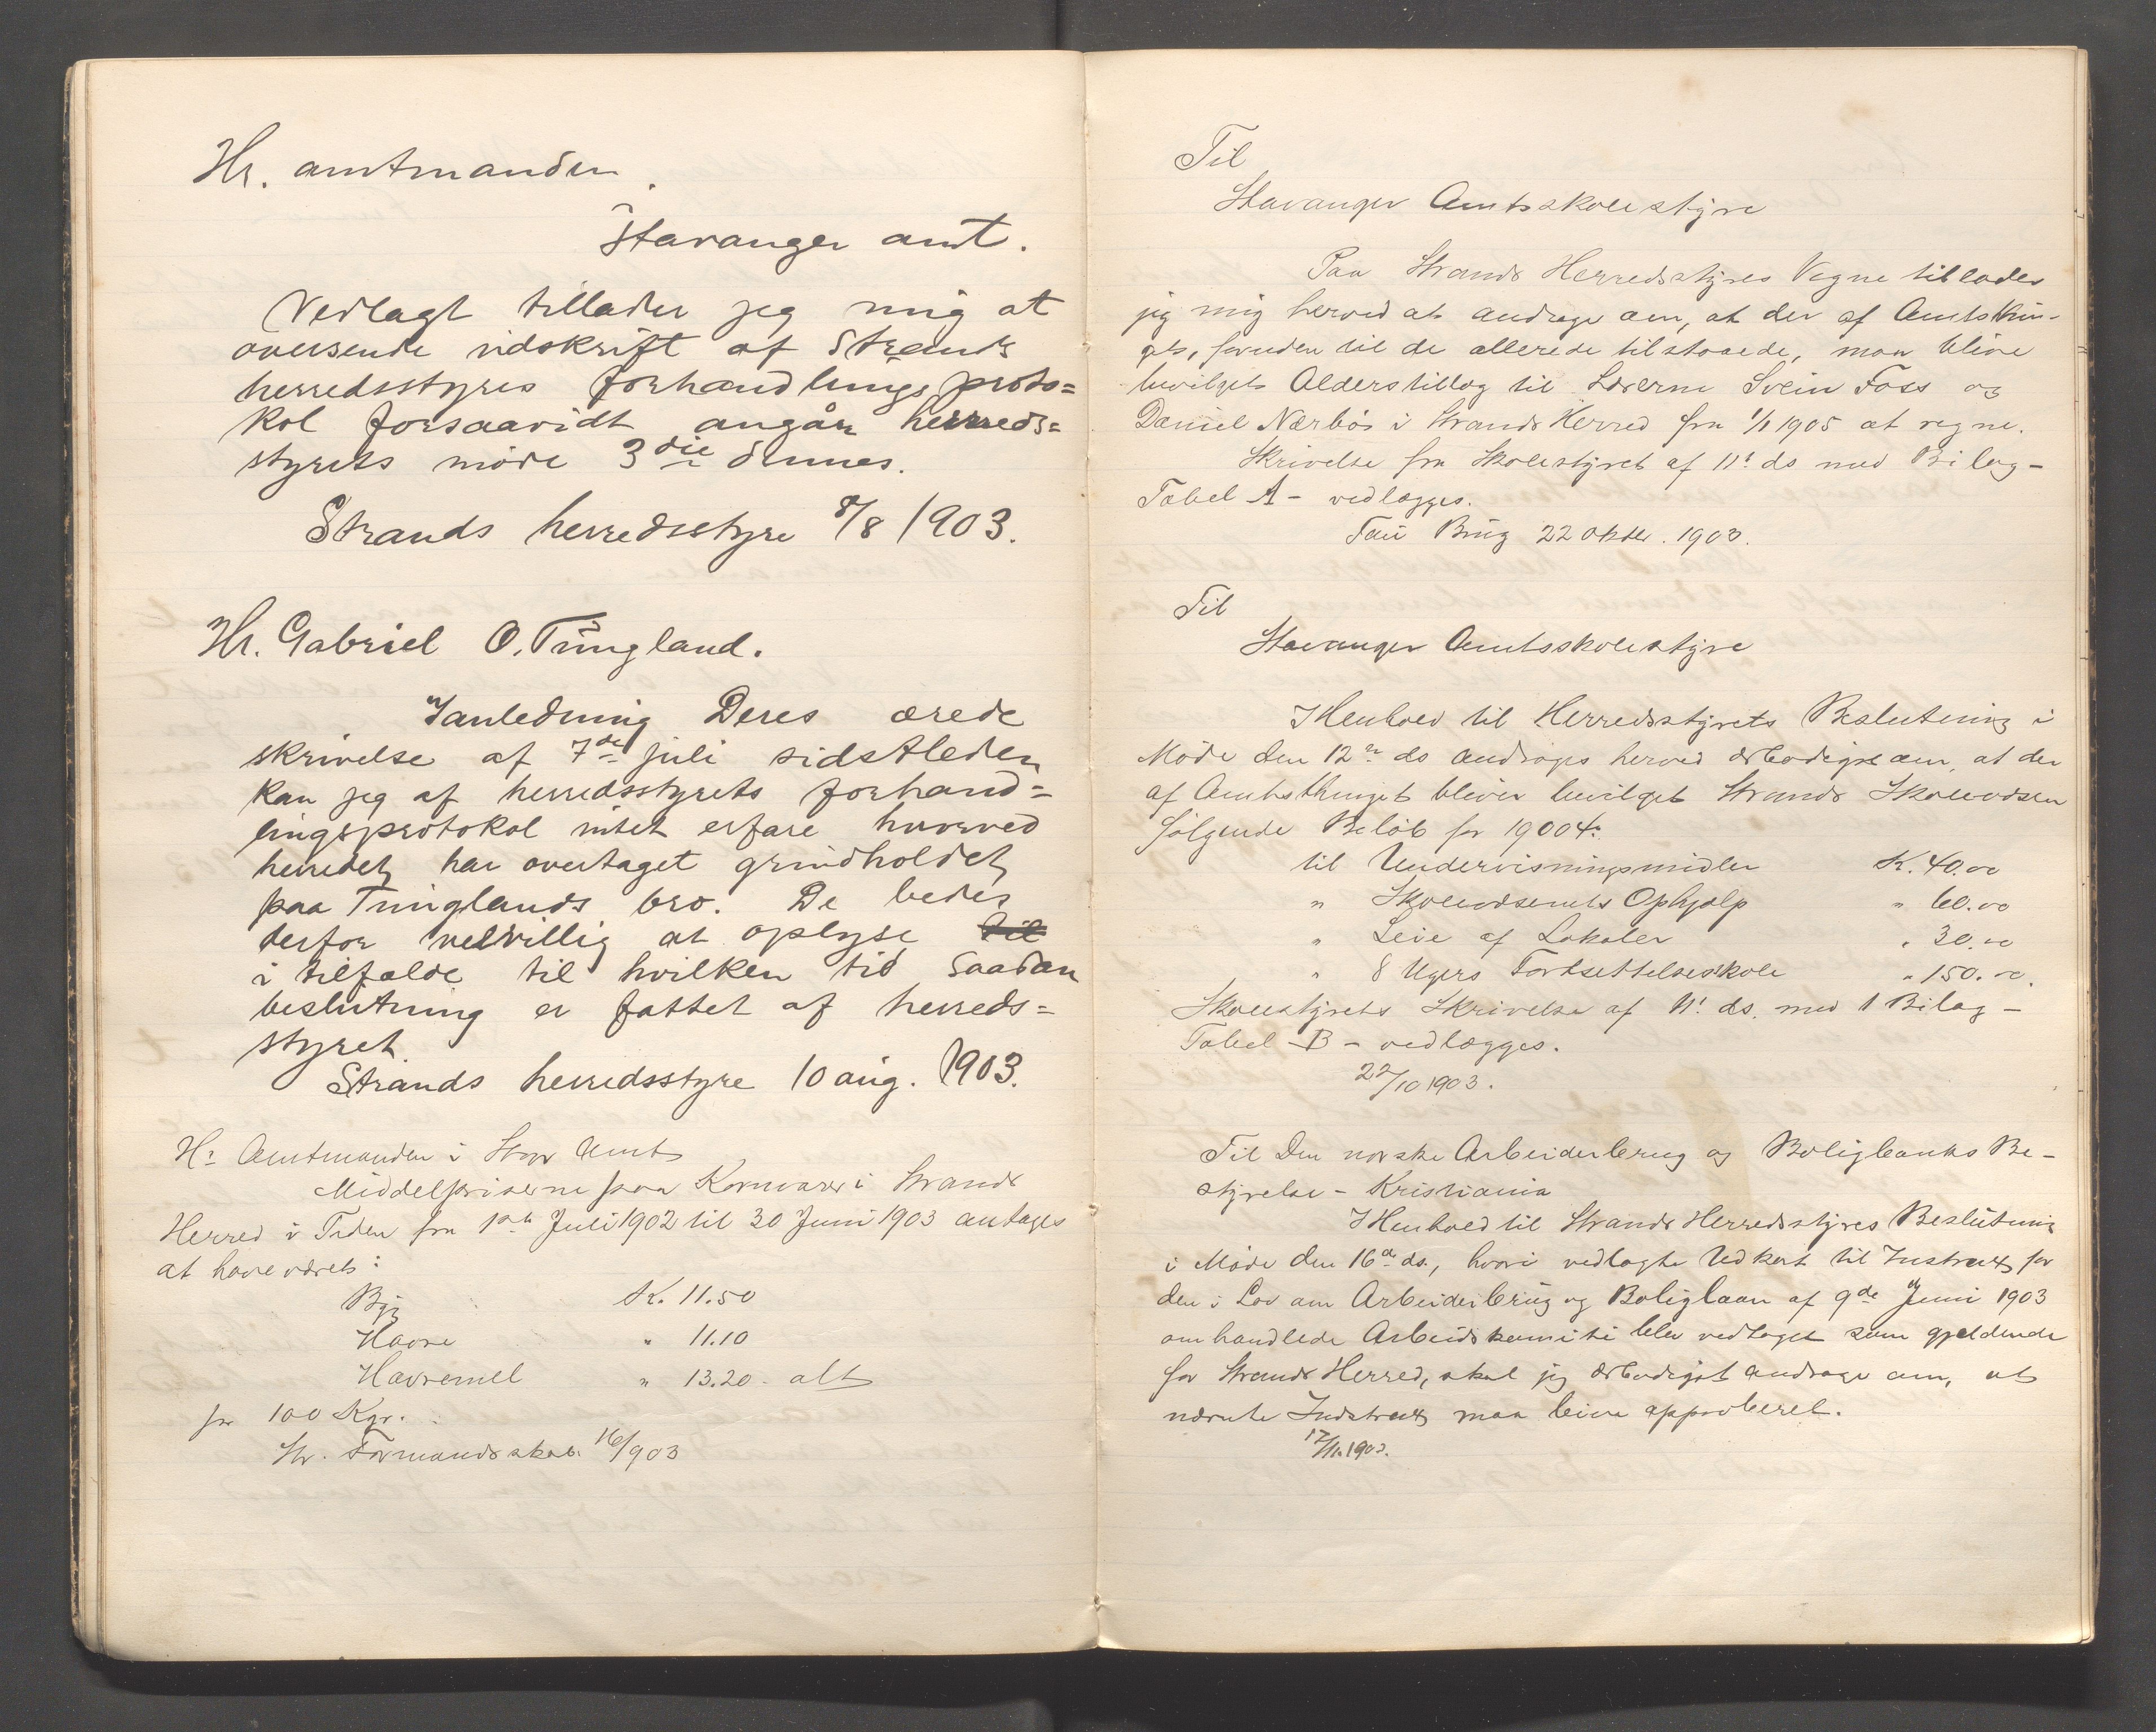 Hr. amtmanden
Stavanger amt.
Vedlagt tillader jeg mig at
oversende udskrift af Strands
herredsstyres forhandlings proto=
kol forsaavidt angår herreds=
styrets møde 3die dennes.
Strands herredsstyre 8/8 1903.
Hr. Gabriel O. Tungland.
Ianledning Deres ærede
skrivelse af 7de juli sidstleden
kan jeg af herredsstyrets forhand=
lingsprotokol intet erfare hvorved
herredet har overtaget grindholdet
paa Tunglands bro. De bedes
derfor velvillig at oplyse til
i tilfælde til hvilken tid saadan
beslutning er fattet af herreds=
styret.
Strands herredsstyre 10 aug. 1903.
Hr Amtmanden i Stavr Amt
Middelpriserne paa Kornvarer i Strands
Herred i Tiden fra 1ste Juli 1902 til 30 Juni 1903 antages
at have været:
Byg K. 11.50
Havre " 11.10
Havremel " 13.20 - alt
pr 100 Kgr.
Str. Formandsskab 16/903
Til
Stavanger Amtsskolestyre
Paa Strands Herredsstyres Vegne tillades
jeg mig herved at andrage om, at der af Amtsthin-
get, foruden til de allerede tilstaaede, maa blive
bevilget Alderstillæg til Lærerne Svein Foss og
Daniel Nærbø i Strands Herred fra 1/1 1905 at regne.
Skrivelse fra Skolestyret af 11t ds med Bilag -
Tabel A - vedlægges.
Tau Brug 22 Oktbr. 1903.
Til
Stavanger Amtsskolestyre
I Henhold til Herredsstyrets Beslutning i
Møde den 12te ds andrages herved ærbødigst om, at der
af Amtsthinget bliver bevilget Strands Skolevæsen
følgende Beløb for 19004:
til Undervisningsmidler K. 40.00
" Skolevæsenets Ophjælp " 60.00
" Leie af Lokaler " 30.00
" 8 Ugers Fortsettelsesskole " 150.00.
Skolestyrets Skrivelse af 11t ds. med 1 Bilag -
Tabel - B - vedlægges.
22/10 1903.
Til Den norske Arbeiderbrug og Boligbanks Be-
styrelse - Kristiania
I Henhold til Strands Herredsstyres Beslutning
i Møde den 16de ds., hvori vedlagte Udkast til Instrux for
den i Lov om Arbeiderbrug og Boliglaan af 9de Juni 1903
omhandlede Arbeidskomite blev vedtaget som gjeldende
for Strands Herred, skal jeg ærbødigst andrage om, at
nævnte Instrux maa blive approberet.
17/11.1903.